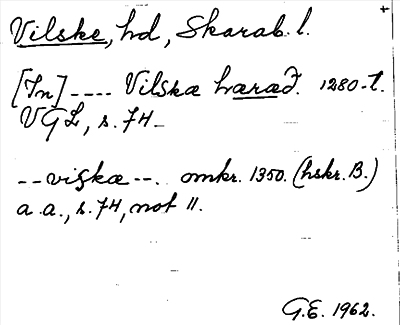 +
Vilske, hd, Skarab. l.
[In] ---- Vilskæ hæræđ. 1280-t.
VGL, s. 74-
--viskæ--. omkr. 1350. (hskr. B.)
a.a., s. 74, not 11.
G.E. 1962.